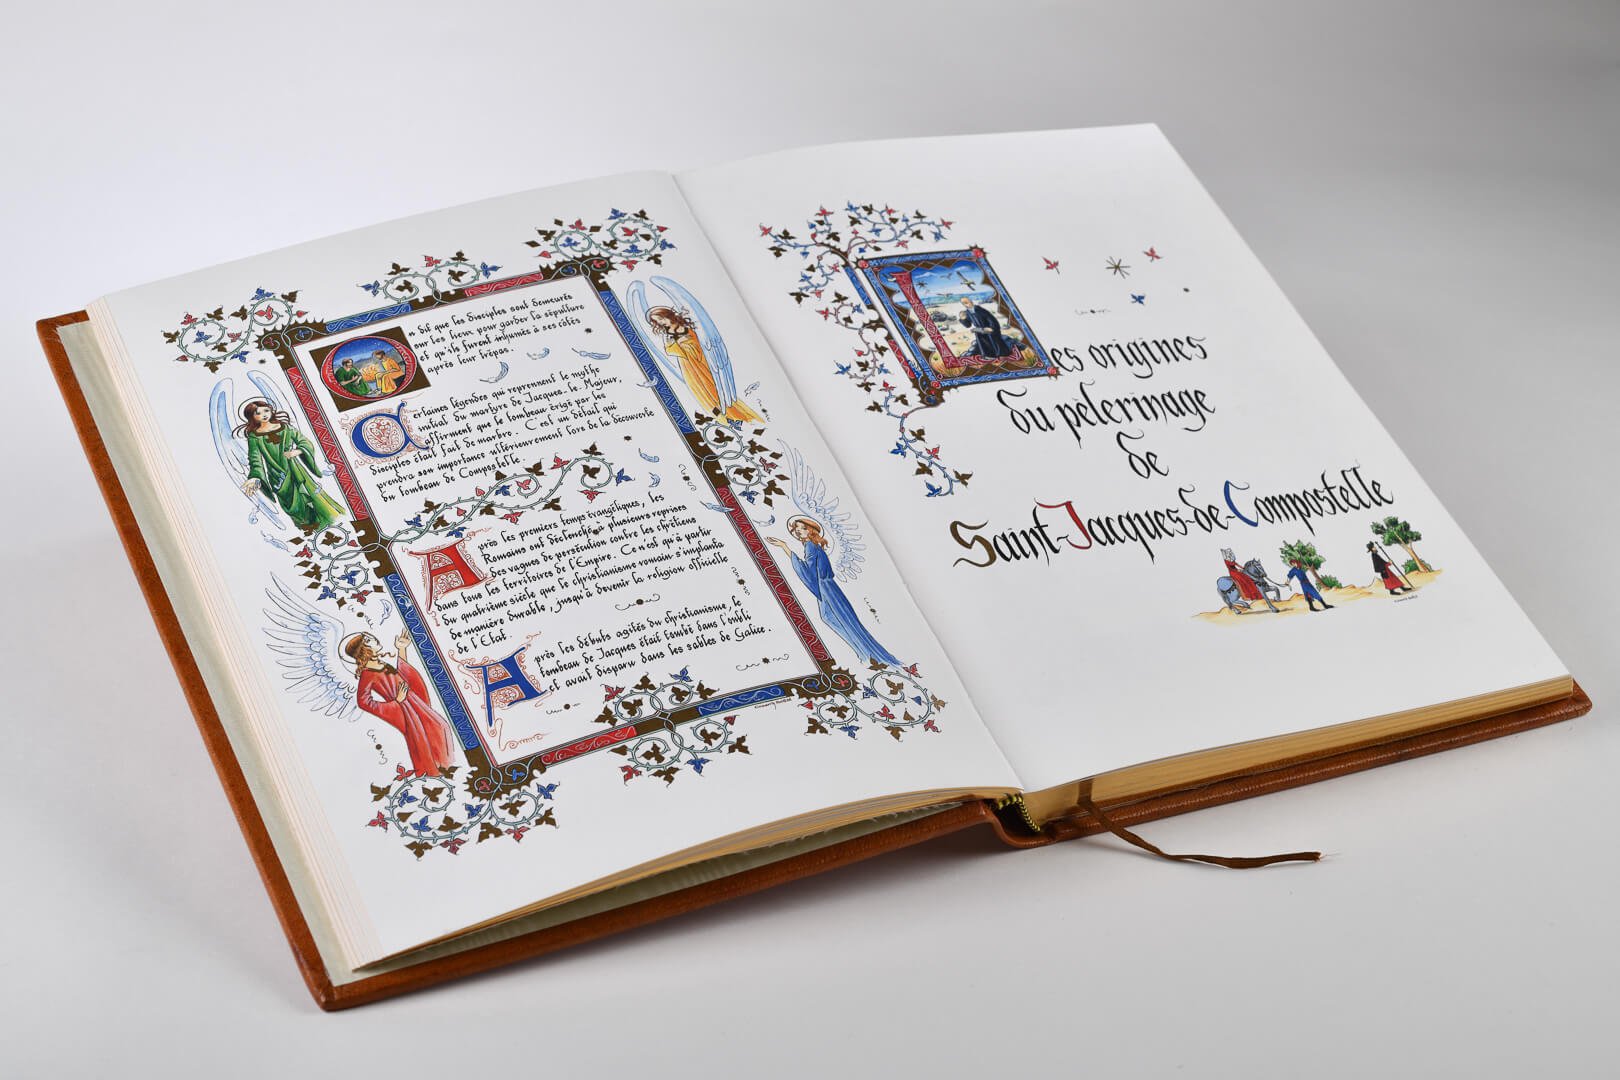 On dit que les disciples sont demeurés
sur les lieux pour garder la sépulture
et qu'ils furent inhumés à ses côtés
après leur trépas.
Certaines légendes qui reprennent le mythe
initial du martyre de Jacques-le-Majeur,
affirment que le tombeau érigé par les
disciples était fait de marbre. C'est un détail qui
prendra son importance ultérieurement lors de la découverte
du tombeau de Compostelle.
Après les premiers temps évangéliques, les
Romains ont déclenché à plusieurs reprises
des vagues de persécution contre les chrétiens
dans tous les territoires de l'Empire. Ce n'est qu'à partir
du quatrième siècle que le christianisme romain s'implanta
de manière durable, jusqu'à devenir la religion officielle
de l'Etat.
Après les débuts agités du christianisme, le
tombeau de Jacques était tombé dans l'oubli
et avait disparu dans les sables de Galice.
Les origines
du pèlerinage
de
Saint-Jacques-de-Compostelle